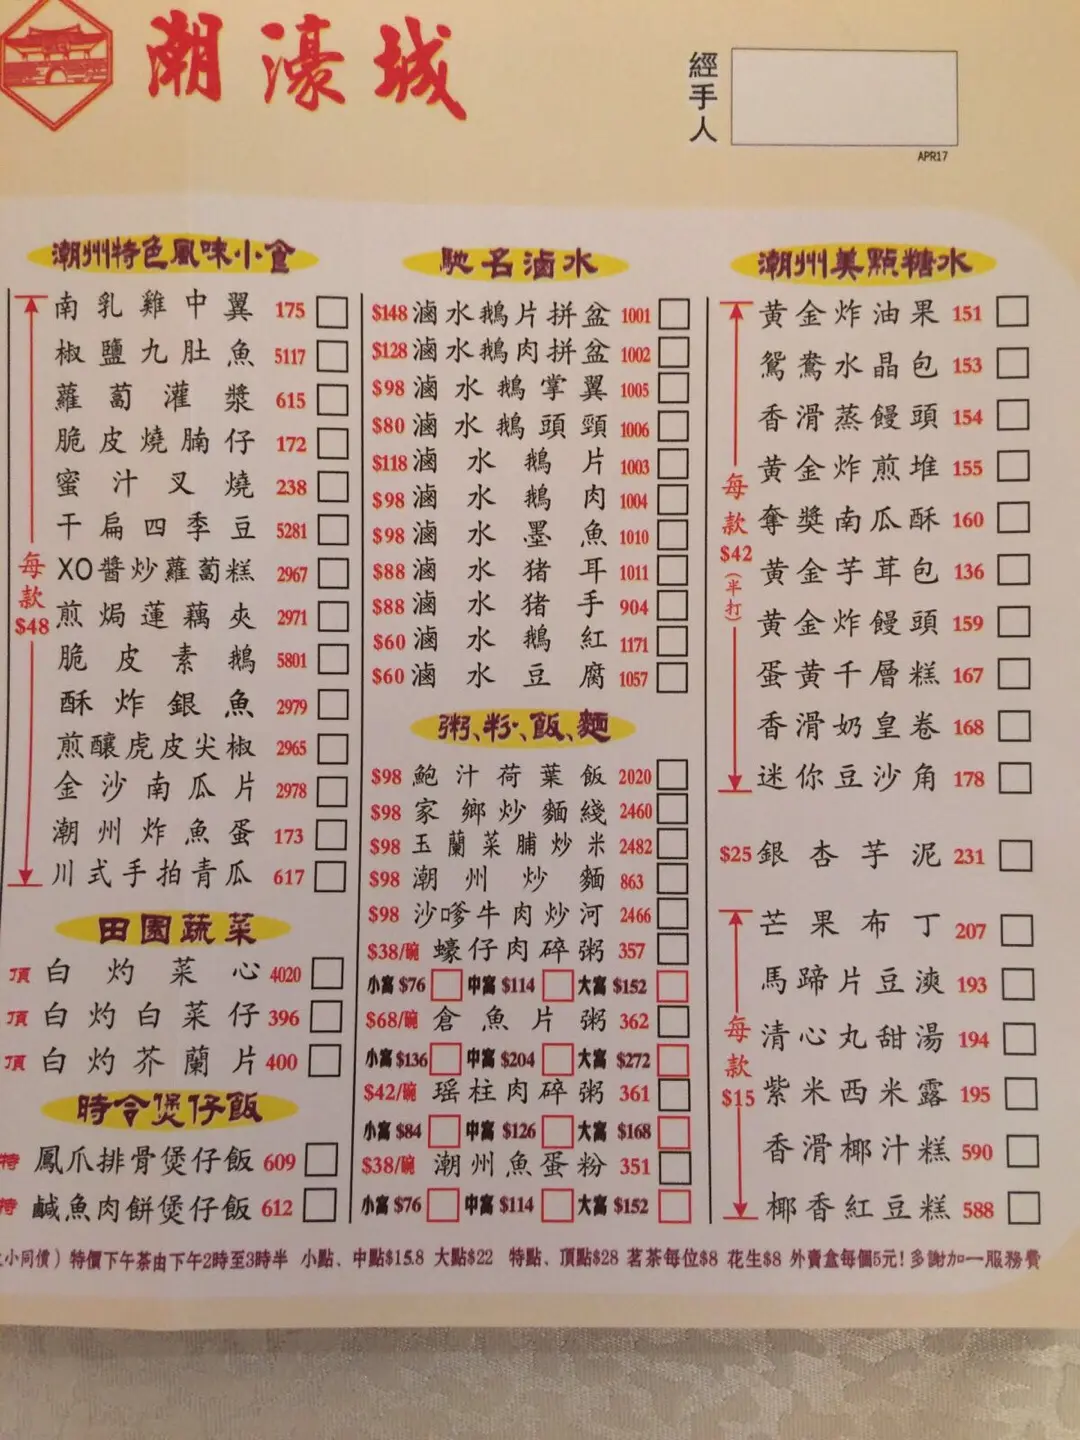 潮濠城
經手人
APR17
潮州特色風味小食
每款$48
南乳雞中翼 175
椒鹽九肚魚 5117
蘿蔔灌漿 615
脆皮燒腩仔 172
蜜汁叉燒 238
干扁四季豆 5281
XO醬炒蘿蔔糕 2967
煎焗蓮藕夾 2971
脆皮素鵝 5801
酥炸銀魚 2979
煎釀虎皮尖椒 2965
金沙南瓜片 2978
潮州炸魚蛋 173
川式手拍青瓜 617
田園蔬菜
頂 白灼菜心 4020
頂 白灼白菜仔 396
頂 白灼芥蘭片 400
時令煲仔飯
特 鳳爪排骨煲仔飯 609
特 鹹魚肉餅煲仔飯 612
馳名滷水
$148 滷水鵝片拼盆 1001
$128 滷水鵝肉拼盆 1002
$98 滷水鵝掌翼 1005
$80 滷水鵝頭頸 1006
$118 滷水鵝片 1003
$98 滷水鵝肉 1004
$98 滷水墨魚 1010
$88 滷水猪耳 1011
$88 滷水猪手 904
$60 滷水鵝紅 1171
$60 滷水豆腐 1057
粥、粉、飯、麵
$98 鮑汁荷葉飯 2020
$98 家鄉炒麵綫 2460
$98 玉蘭菜脯炒米 2482
$98 潮州炒麵 863
$98 沙嗲牛肉炒河 2466
$38/碗 蠔仔肉碎粥 357
小窩 $76 中窩 $114 大窩 $152
$68/碗 倉魚片粥 362
小窩 $136 中窩 $204 大窩 $272
$42/碗 瑤柱肉碎粥 361
小窩 $84 中窩 $126 大窩 $168
$38/碗 潮州魚蛋粉 351
小窩 $76 中窩 $114 大窩 $152
潮州美點糖水
每款$42(半打)
黃金炸油果 151
鴛鴦水晶包 153
香滑蒸饅頭 154
黃金炸煎堆 155
奪獎南瓜酥 160
黃金芋茸包 136
黃金炸饅頭 159
蛋黃千層糕 167
香滑奶皇卷 168
迷你豆沙角 178
$25 銀杏芋泥 231
每款$15
芒果布丁 207
馬蹄片豆漺 193
清心丸甜湯 194
紫米西米露 195
香滑椰汁糕 590
椰香紅豆糕 588
小同價）特價下午茶由下午2時至3時半 小點、中點$15.8 大點$22 特點、頂點$28 茗茶每位$8 花生$8 外賣盒每個5元! 多謝加一服務費